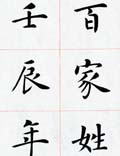 百家姓
壬辰年